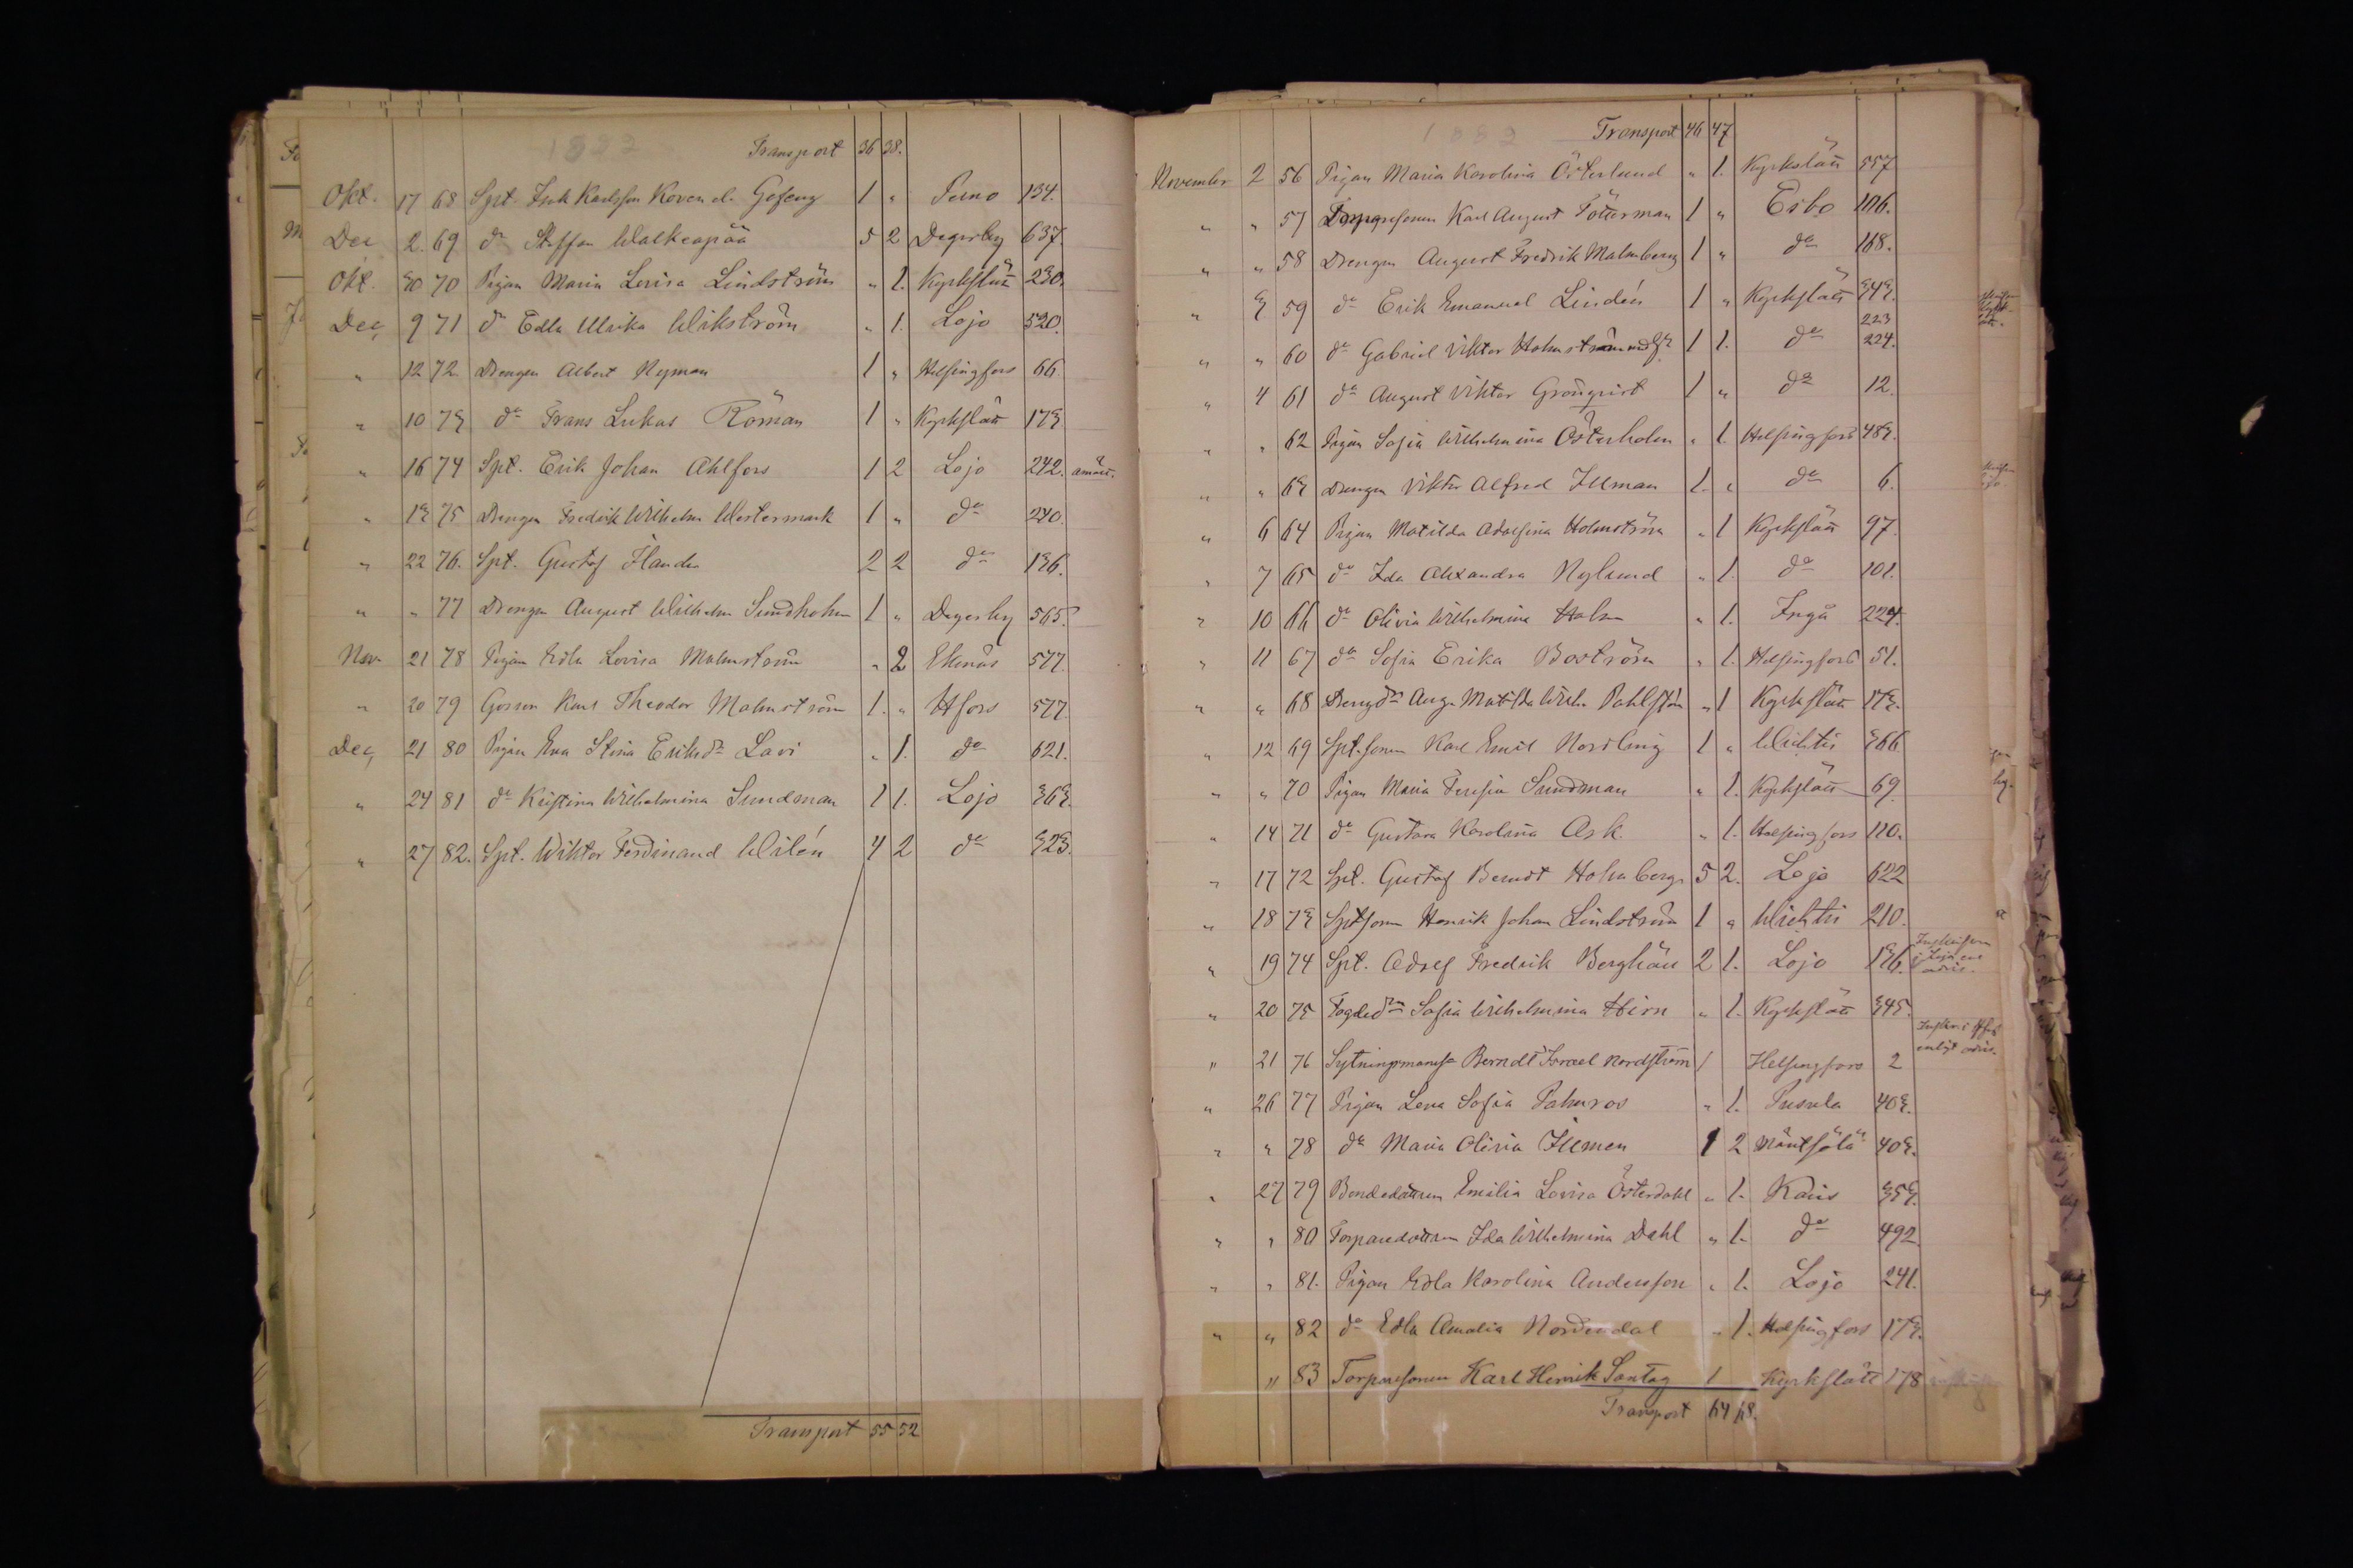 1882
Transport 36 38.
Okt. 17 68 Spt. Isak Karlsson Koven el. Gefeng 1 " Perno 134.
Dec 2. 69 do Staffan Walkeapää 5 2 Degerby 637.
Okt. 30 70 Pigan Maria Lovisa Lindström " 1. Kyrkslätt 230.
Dec, 9 71 do Edla Ulrika Wikström " 1. Lojo 520.
" 12 72. Drengen Albert Nyman 1 " Helsingfors 66
" 10 73 do Frans Lukas Röman 1 " Kyrkslätt 173
" 16 74 Spt. Erik Johan Ahlfors 1 2 Lojo 242.
" 13 75 Drengen Fredrik Wilhelm Westermark 1 " do 240.
" 22 76. Spt. Gustaf Flander 2 2 do 136.
" " 77 Drengen August Wilhelm Sundholm 1 " Degerby 565.
Nov. 21 78 Pigan Edla Lovisa Malmström " 2 Ekenäs 577.
" 20 79 Gossen Karl Theodor Malmström 1. " Hfors 577.
Dec, 21 80 Pigan Eva Stina Eriksdr Lavi " 1. do 621.
" 24 81 do Kristina Wilhelmina Sundman 1 1. Lojo 363.
" 27 82. Spt. Wiktor Ferdinand Wilén 4 2 do 323.
Transport 55 52
1882
Transport 46 47
November 2 56 Pigan Maria Karolina Österlund " 1. Kyrkslätt 557
" " 57 Torparesonen Karl August Fötterman 1 " Esbo 106.
" " 58 Drengen August Fredrik Malmberg 1 " do 168.
" 3 59 do Erik Emanuel Lindén 1 " Kyrkslätt 343.
223
" " 60 do Gabriel Viktor Holmström 1 1. do 224.
" 4 61 do August Viktor Grönqvist 1 " do 12.
" " 62 Pigan Sofia Wilhelmina Österholm " 1. Helsingfors 483.
" " 63 Drengen Viktor Alfred Illman 1. " do 6.
" 6 64 Pigan Matilda Adolfina Holmström " 1 Kyrkslätt 97.
" 7 65 do Ida Alexandra Nylund " 1. do 101.
" 10 66 do Olivia Wilhelmina Holm " 1. Ingå 224.
" 11 67 do Sofia Erika Boström " 1. Helsingfors 51.
" " 68 Drengdr Aug. Matilda Wilh. Pahlsten " 1 Kyrkslätt 173.
" 12 69 Spt.sonen Karl Emil Nordling 1 " Wichtis 366
" " 70 Pigan Maria Sundman " 1. Kyrkslätt 69.
" 14 71 do Gustava Karolina Ask " 1. Helsingfors 110.
" 17 72 Spt. Gustaf Berndt Holmberg 5 2. Lojo 622
" 18 73 Sptsonen Henrik Johan Lindström 1 " Wichtis 210.
" 19 74 Spt. Adolf Fredrik Berghäll 2 1. Lojo 136.
" 20 75 Fogdedn Sofia Wilhelmina Hirn " 1. Kyrkslätt 345.
" 21 76 Berndt Israel Nordström 1 Helsingfors 2
" 26 77 Pigan Lena Sofia Pahuros " 1. Pusula 403.
" " 78 do Maria Olivia Illman 1 2 Mäntsälä 403.
" 27 79 Bondedottren Emilia Lovisa Österdahl " 1. Karis 353.
" " 80 Torparedottren Ida Wilhelmina Dahl " 1. do 492
" " 81. Pigan Edla Karolina Andersson " 1. Lojo 241.
" " 82 do Edla Amalia Nordendal " 1. Helsingfors 173.
" 83 Torparesonen Karl Henrik Sontag 1 Kyrkslätt 178
Transport 64 68.